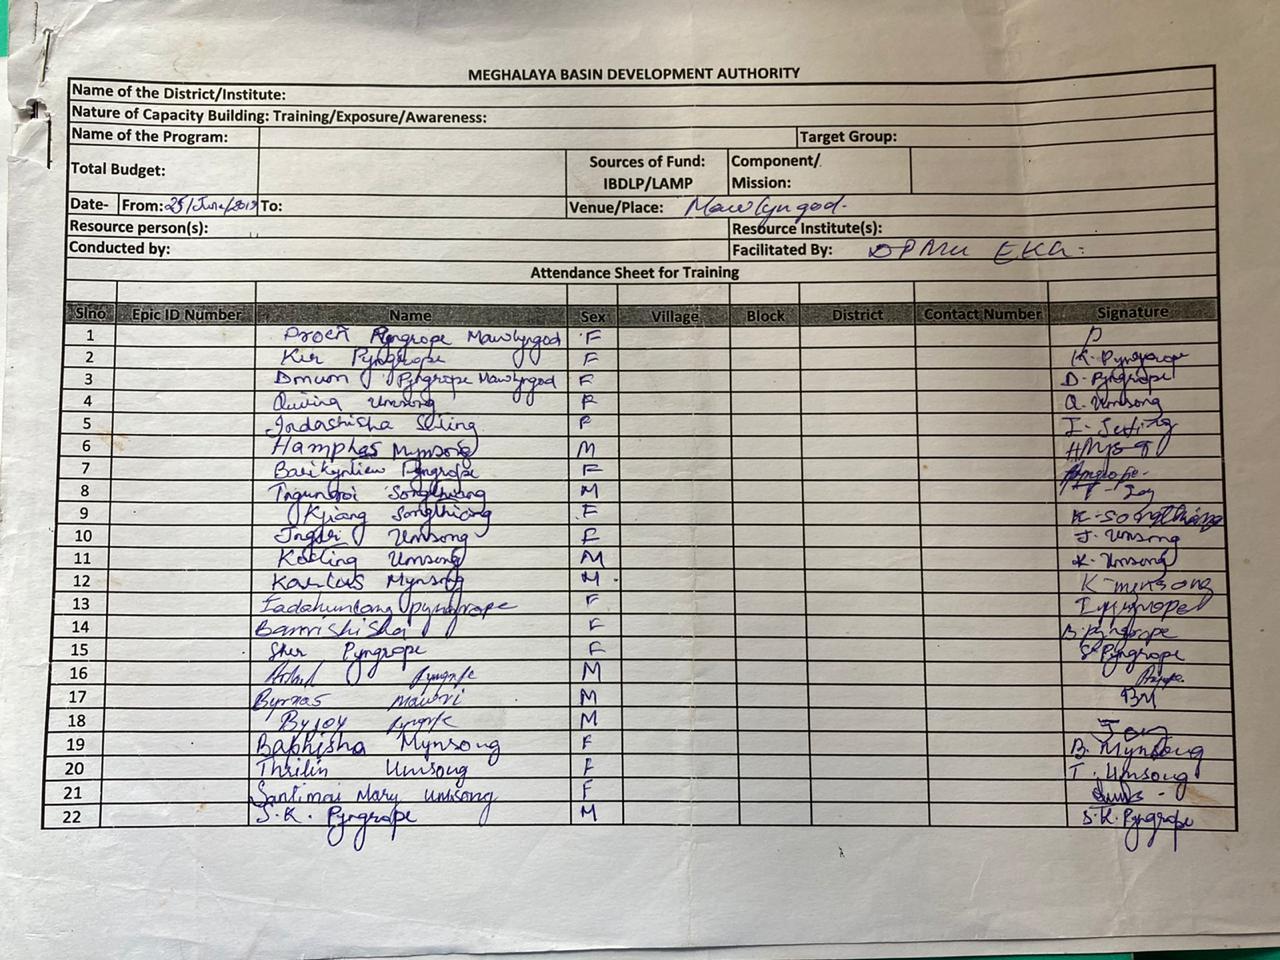 MEGHALAYA BASIN DEVELOPMENT AUTHORITY
Name of the District/Institute:
Nature of Capacity Building: Training/Exposure/Awareness:
Name of the Program: Target Group:
Total Budget: Sources of Fund: IBDLP/LAMP Component/ Mission:
Date- From: 25/June/2019 To: Venue/Place: Mawlyngod.
Resource person(s): Resource Institute(s):
Conducted by: Facilitated By: DPMU EKH:
Attendance Sheet for Training
Slno Epic ID Number Name Sex Village Block District Contact Number Signature
1 Pyngrope Mawlyngod F P
2 Ker Pyngrope F K. Pyngrope
3 Dmum Pyngrope Mawlyngod F D. Pyngrope
4 Umsong F Q. Umsong
5 Indashisha F
6 Hamphas Mynsong M
7 Pyngrope F
8 Songthiang M
9 Kjiang Songthiang F K. Songthiang
10 Umsong F J. Umsong
11 Umsong M K. Umsong
12 Mynsong M K-minsong
13 pyngrope F
14 Bamrishisha F B. pyngrope
15 Sher Pyngrope F S Pyngrope
16 M
17 Byrnas Mawri M BM
18 Byjoy M
19 Baphisha Mynsong F B. Mynsong
20 Thrilin Umsong F T. Umsong
21 Santimai Mary Umsong F
22 S.K. Pyngrope M S.K. Pyngrope